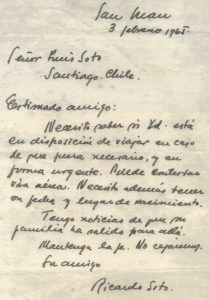 San Juan
3 febrero 1965.
Señor Luis Soto
Santiago. Chile.
Estimado amigo:
Necesito saber si Ud. está
en disposición de viajar en caso
de que fuera necesario, y en
forma urgente. Puede contestar
vía aérea. Necesito además tener
su fecha y lugar de nacimiento.
Tengo noticias de que su
familia ha salido para allá.
Mantenga la fe. No cejamos.
Su amigo
Ricardo Soto.